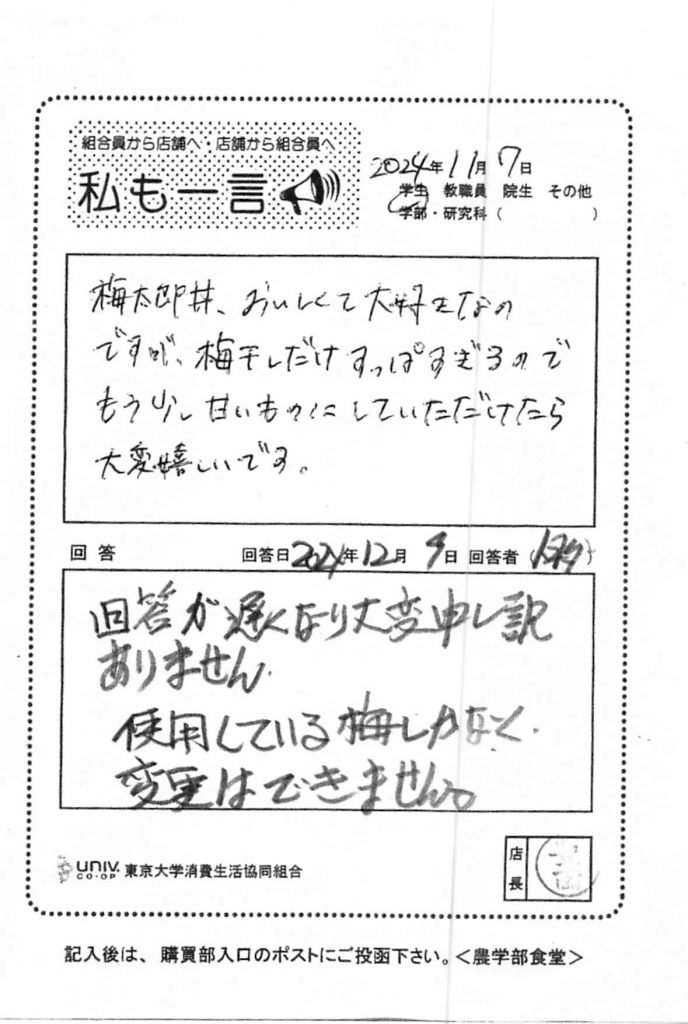 組合員から店舗へ 店舗から組合員へ
私も一言
2024年11月7日
学生 教職員 院生 その他
学部・研究科( )
梅太郎丼、おいしくて大好きなの
ですが、梅干しだけすっぱすぎるので
もう少し甘いものにしていただけたら
大変嬉しいです。
回答 回答日2024年12月9日 回答者( )
回答が遅くなり大変申し訳
ありません。
使用している梅しかなく、
変更はできません。
UNIV. CO-OP 東京大学消費生活協同組合
店長
記入後は、購買部入口のポストにご投函下さい。<農学部食堂>